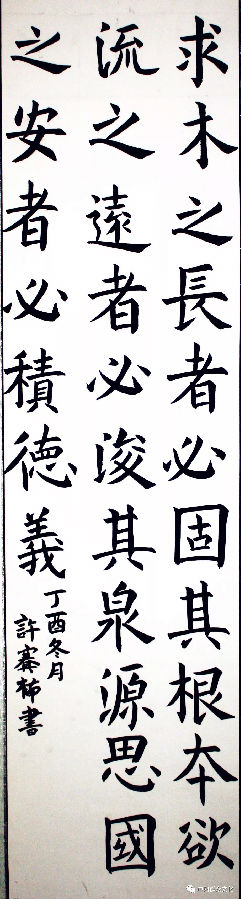 求木之長者必固其根本欲
流之遠者必浚其泉源思國
之安者必積德義
丁酉冬月
許審梯書